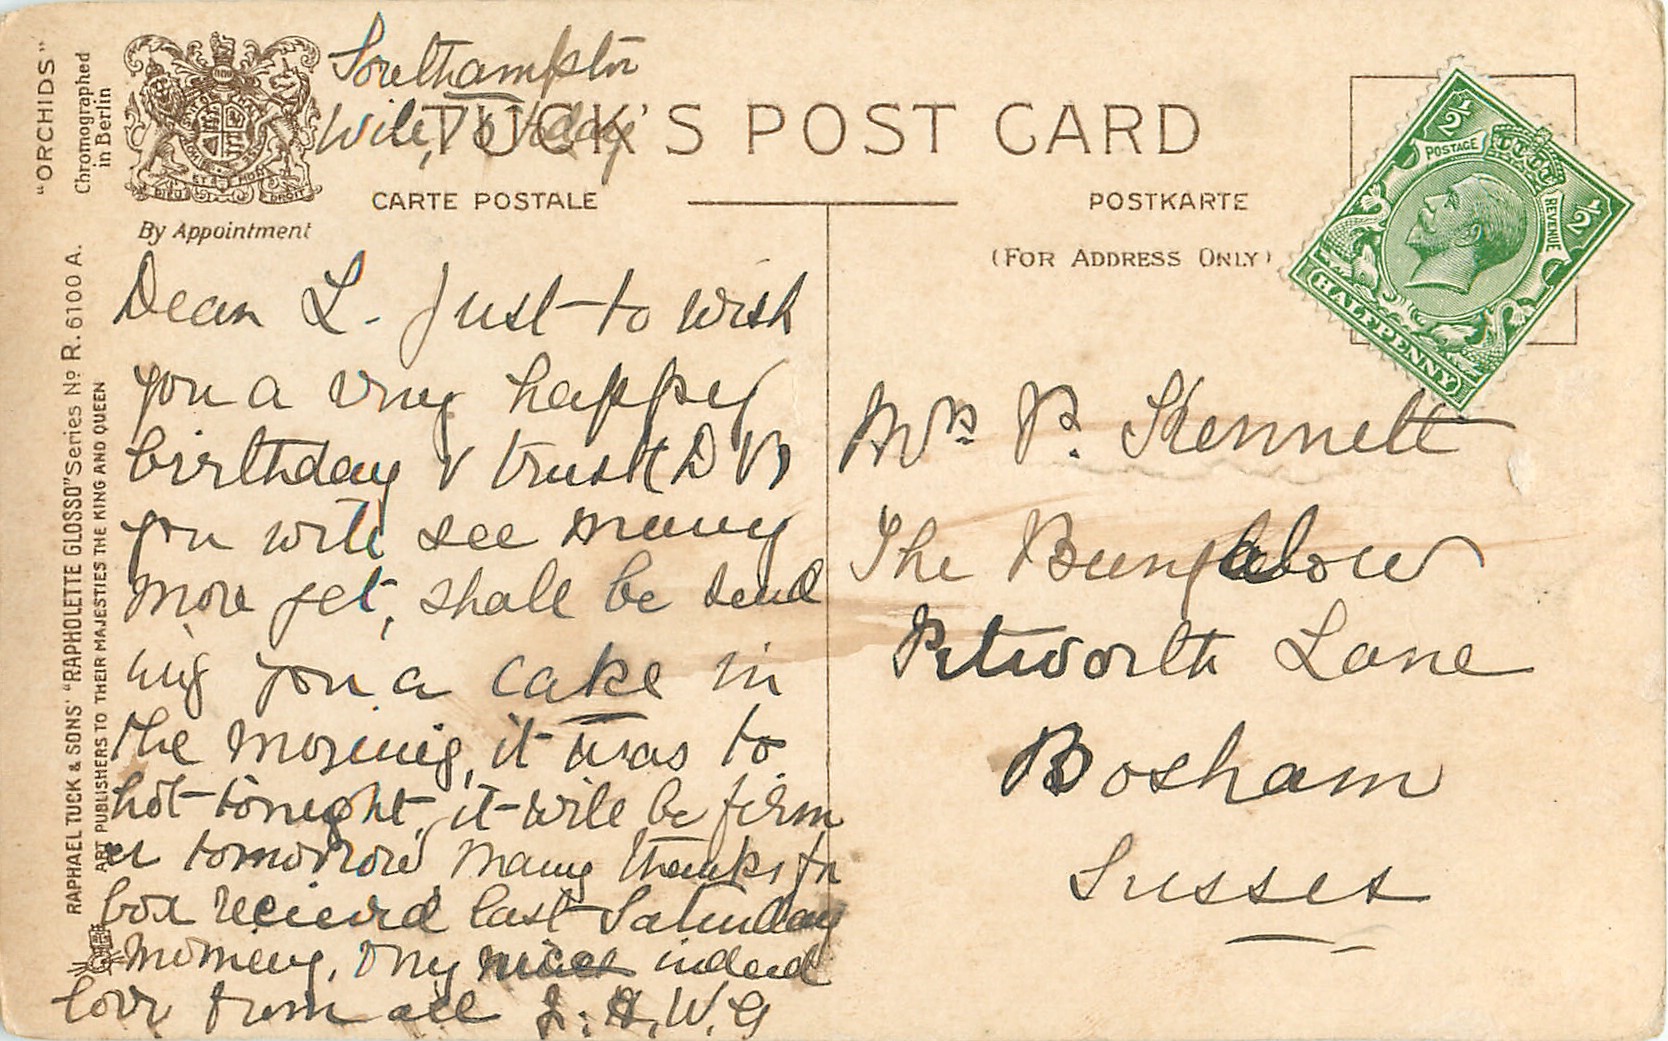 "ORCHIDS"
Chromographed
in Berlin
RAPHAEL TUCK & SONS' "RAPHOLETTE GLOSSO" Series No R. 6100 A.
ART PUBLISHERS TO THEIR MAJESTIES THE KING AND QUEEN
By Appointment
DIEU ET MON DROIT
Southampton
TUCK'S POST CARD
CARTE POSTALE
POSTKARTE
(FOR ADDRESS ONLY)
½ ½
POSTAGE REVENUE
HALFPENNY
Dear L. Just to wish
you a very happy
birthday & trust D V
you will see many
more yet, shall be send
ing you a cake in
the morning, it was to
hot tonight, it will be firm
er tomorrow Many thanks for
box recieved last Saturday
morning, very nice indeed
love from all J. H. W. G
Mrs P. Kennett
The Bungalow
Petworth Lane
Bosham
Sussex